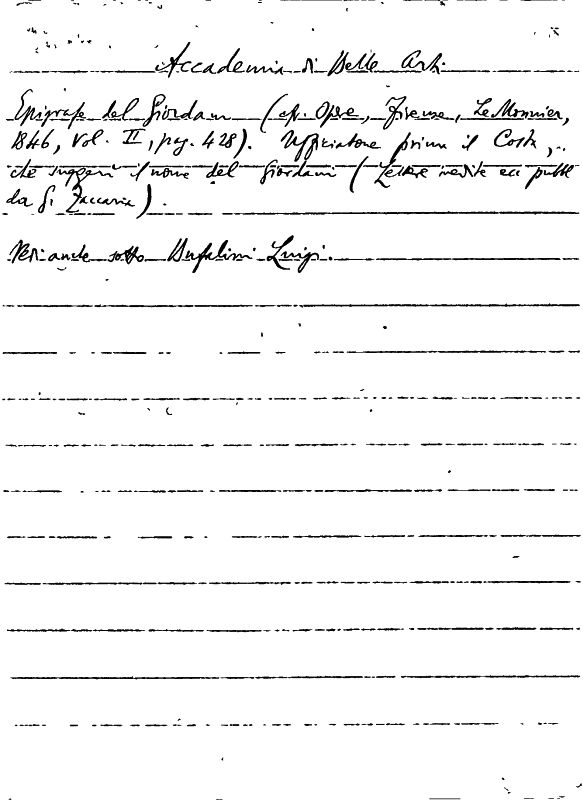 Accademia di Belle Arti
Epigrafe del Giordani (cfr. Opere, Firenze, Le Monnier,
1846, Vol. II, pag. 428). Ufficiatone prima il Costa,
che suggerì il nome del Giordani (Lettere inedite ecc pubbl
da G. Zaccaria).
Vedi anche sotto Bufalini Luigi.